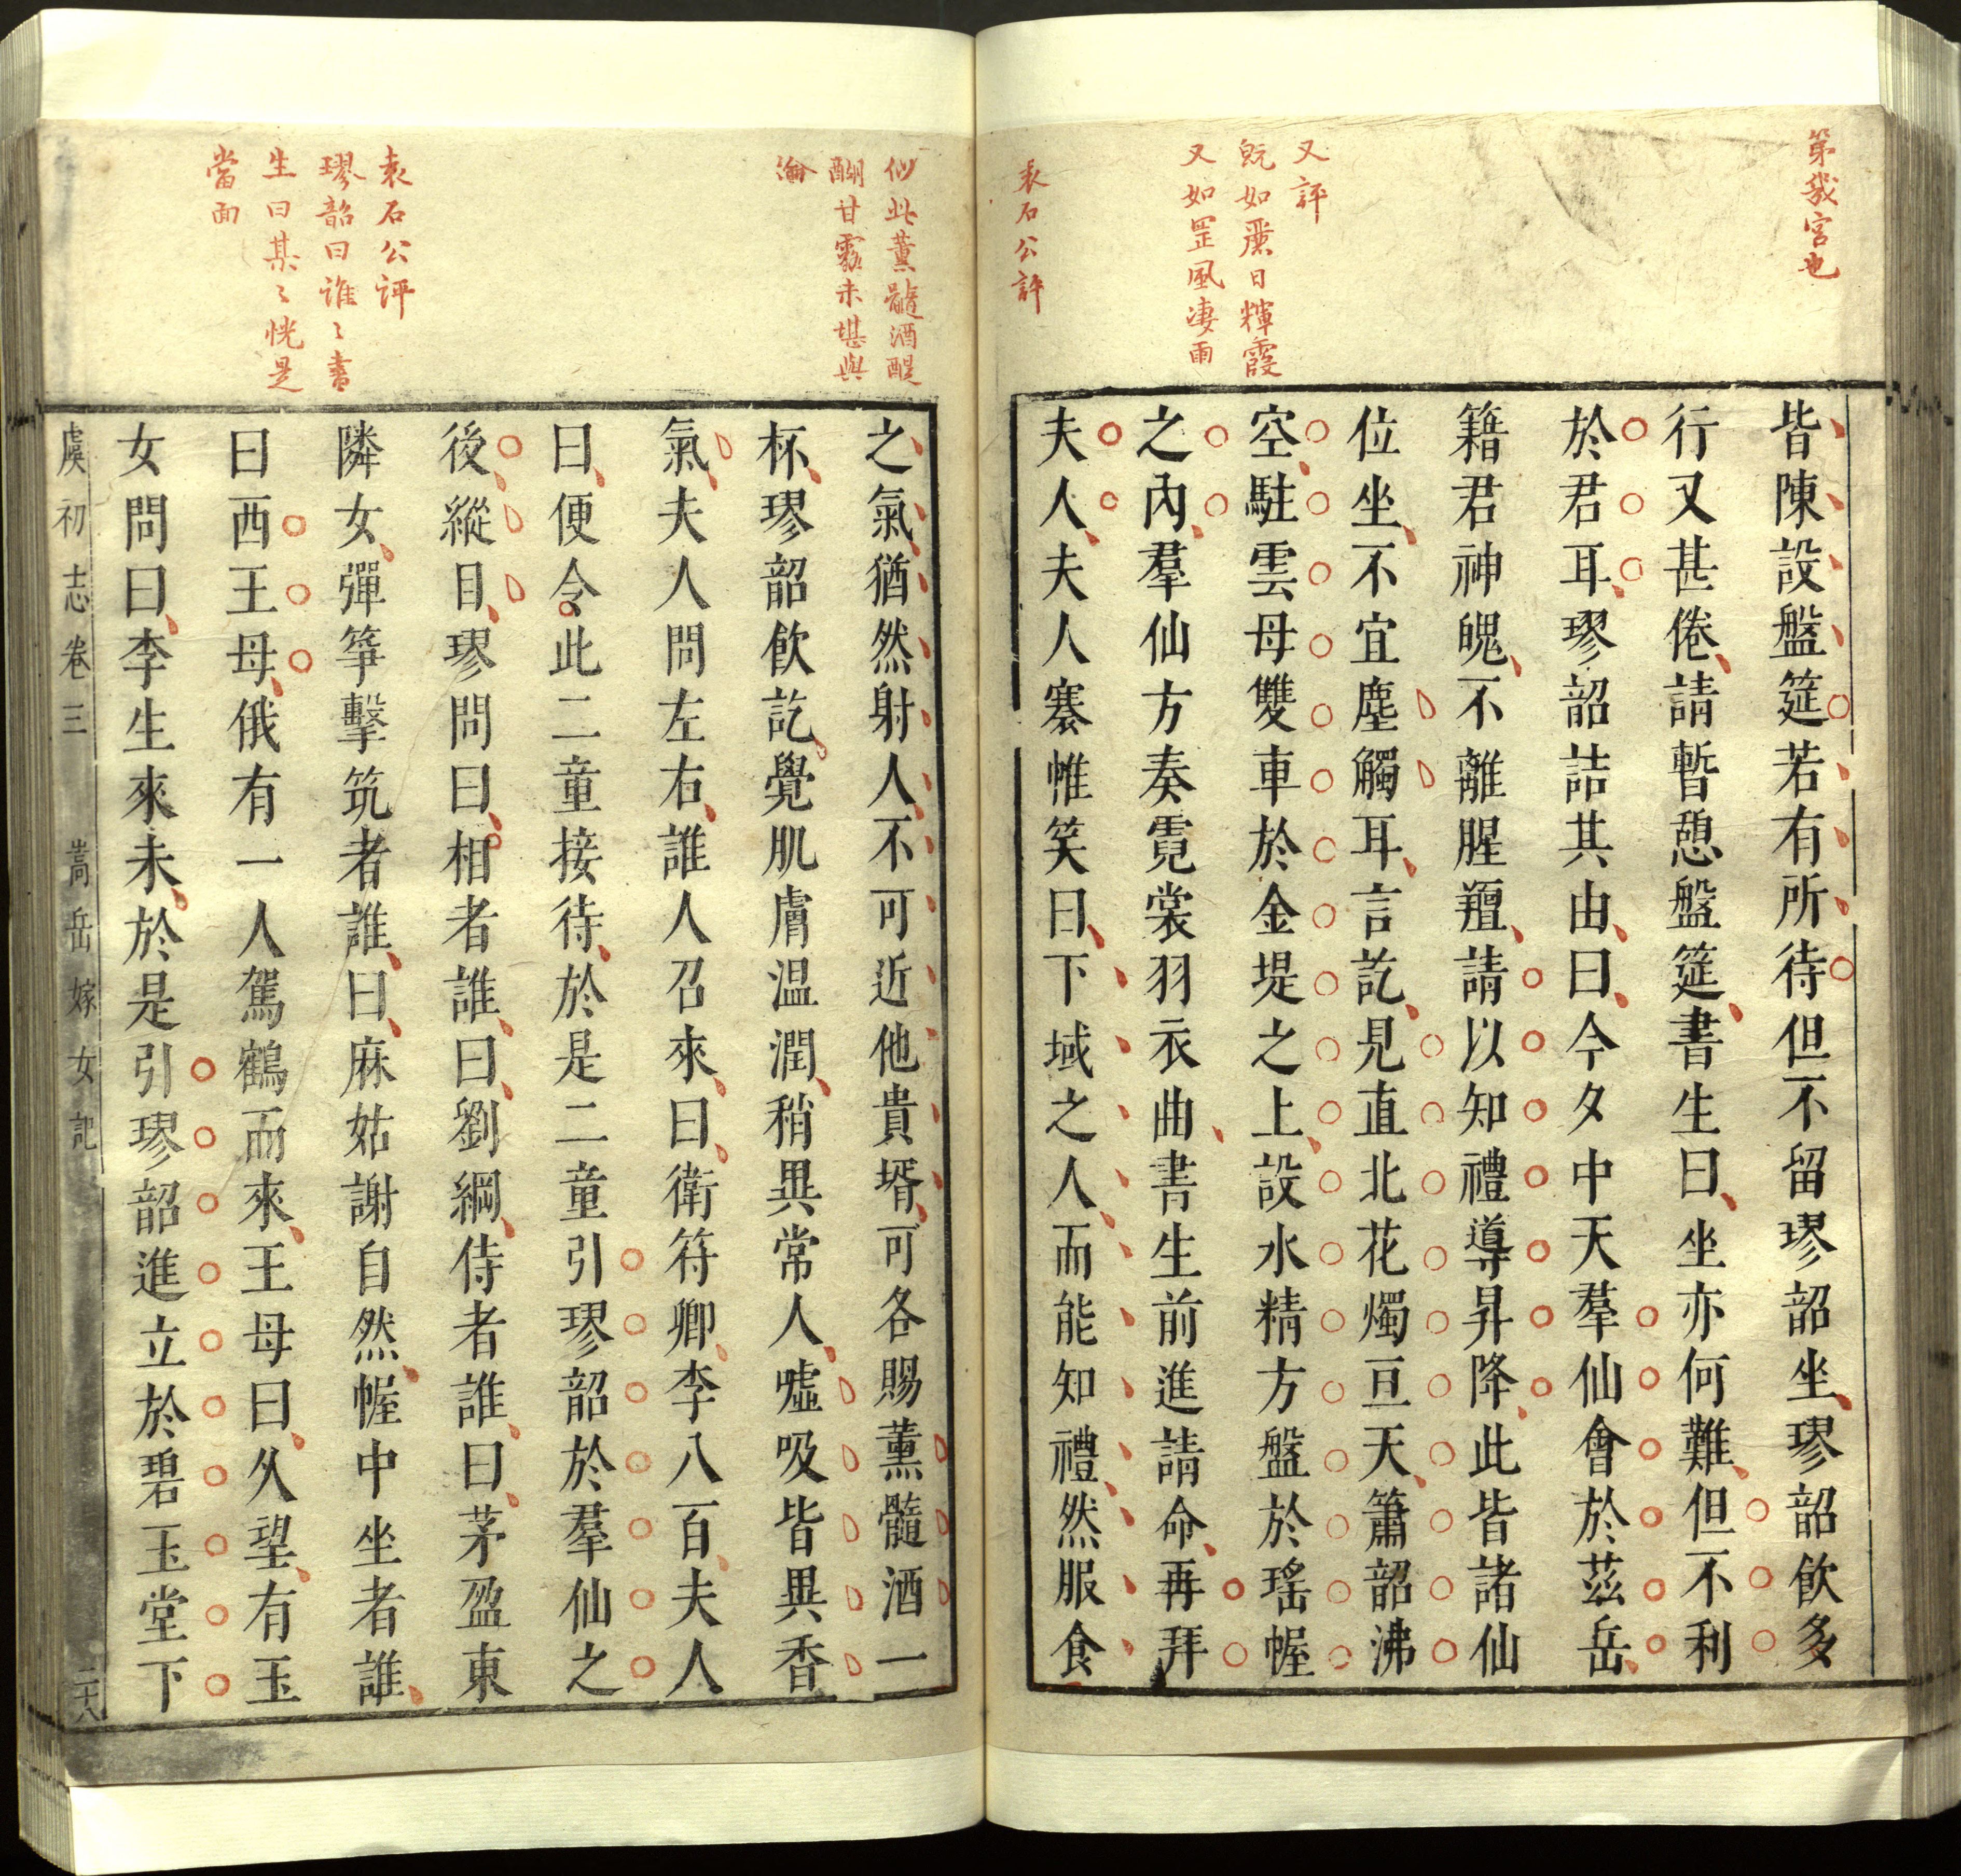 第幾宮也
又評
既如麗日輝霞
又如罡風凄雨
袁石公評
皆陳設盤筵若有所待但不留璆韶坐璆韶飲多
行又甚倦請暫憩盤筵書生曰坐亦何難但不利
於君耳璆韶詰其由曰今夕中天羣仙會於茲岳
籍君神魄不離腥羶請以知禮導昇降此皆諸仙
位坐不宜塵觸耳言訖見直北花燭亘天簫韶沸
空駐雲母雙車於金堤之上設水精方盤於瑤幄
之內羣仙方奏霓裳羽衣曲書生前進請命再拜
夫人夫人褰帷笑曰下域之人而能知禮然服食
似此薰髓酒醍
醐甘露未堪與
瀹
袁石公評
璆韶曰誰〻書
生曰某〻恍是
當面
之氣猶然射人不可近他貴壻可各賜薰髓酒一
杯璆韶飲訖覺肌膚温潤稍異常人噓吸皆異香
氣夫人問左右誰人召來曰衛符卿李八百夫人
曰便令此二童接待於是二童引璆韶於羣仙之
後縱目璆問曰相者誰曰劉綱侍者誰曰茅盈東
隣女彈箏擊筑者誰曰麻姑謝自然幄中坐者誰
曰西王母俄有一人駕鶴而來王母曰久望有玉
女問曰李生來未於是引璆韶進立於碧玉堂下
虞初志卷三 嵩岳嫁女記 二十八